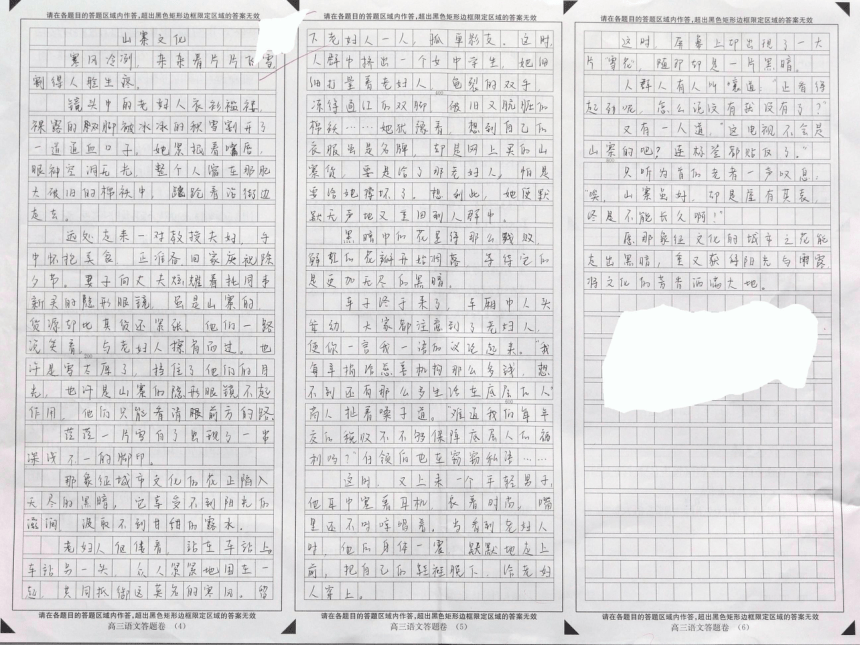 请在各题目的答题区域内作答,超出黑色矩形边框限定区域的答案无效
山寨文化
寒风冷冽,朵朵着片片飞雪,
割得人脸生疼。
镜头中的老妇人衣衫褴褛,
裸露的双脚被冰冰的积雪割开了
一道道血口子。她紧抿着嘴唇,
眼神空洞无光,整个人缩在那肥
大破旧的棉袄中,蹒跚着沿街边
走去。
远处走来一对教授夫妇,手
中怀抱美食,正准备回家庆祝除
夕节。妻子向丈夫炫耀着托同事
新买的隐形眼镜,虽是山寨的
货源却比真货还紧张。他们一路
说笑着,与老妇人擦肩而过。也
许是雪太厚了,挡住了他们的目
光,也许是山寨的隐形眼镜不起
作用,他们只能看清眼前方的路。
茫茫一片雪白了出现了一串
深浅不一的脚印。
那象征城市文化的花正陷入
无尽的黑暗,它享受不到阳光的
滋润,汲取不到甘甜的露水。
老妇人佝偻着,站在车站上,
车站另一头,众人紧紧地围在一
起,共同抵御这莫名的寒风。留
请在各题目的答题区域内作答,超出黑色矩形边框限定区域的答案无效
高三语文答题卷 (4)
请在各题目的答题区域内作答,超出黑色矩形边框限定区域的答案无效
下老妇人一人,孤单影支。这时,
人群中挤出一个女中学生,她仔
细打量着老妇人,皲裂的双手,
冻得通红的双脚,破旧又肮脏的
棉袄……她犹豫着,想到自己的
衣服虽是名牌,却是网上买的山
寨货,要是给了那老妇人,怕是
要给她撑坏了。想到此,她便默
默无声地又走回到人群中。
黑暗中的花显得那么战败,
鲜艳的花瓣开始凋落,等待它的
是更加无尽的黑暗。
车子终于来了,车厢中人头
攒动,大家都注意到了老妇人,
便你一言我一语的议论起来。“我
每年捐给慈善机构那么多钱,想
不到还有那么多生活在底层的人”
商人扯着嗓子道。“难道我们每年
交的税收不不够保障底层人的福
利吗?”白领们也在窃窃私语……
这时,又上来一个年轻男子,
他耳中塞着耳机,衣着时尚,嘴
里还不时哼唱着。当看到老妇人
时,他的身体一震,默默地走上
前,把自己的鞋脱下,给老妇
人穿上。
请在各题目的答题区域内作答,超出黑色矩形边框限定区域的答案无效
高三语文答题卷 (5)
请在各题目的答题区域内作答,超出黑色矩形边框限定区域的答案无效
这时,屏幕上却出现了一大
片雪花,随即却是一片黑暗。
人群人有人叫嚷道:“正看得
起劲呢,怎么说没有就没有了?”
又有一人道,“这电视不会是
山寨的吧?连标签都贴反了。”
只听为首的老者一声叹息,
“唉,山寨虽好,却是虚有其表,
终是不能长久啊!”
愿那象征文化的城市之花能
走出黑暗,重又获得阳光与雨露,
将文化的芳香洒满大地。
请在各题目的答题区域内作答,超出黑色矩形边框限定区域的答案无效
高三语文答题卷 (6)